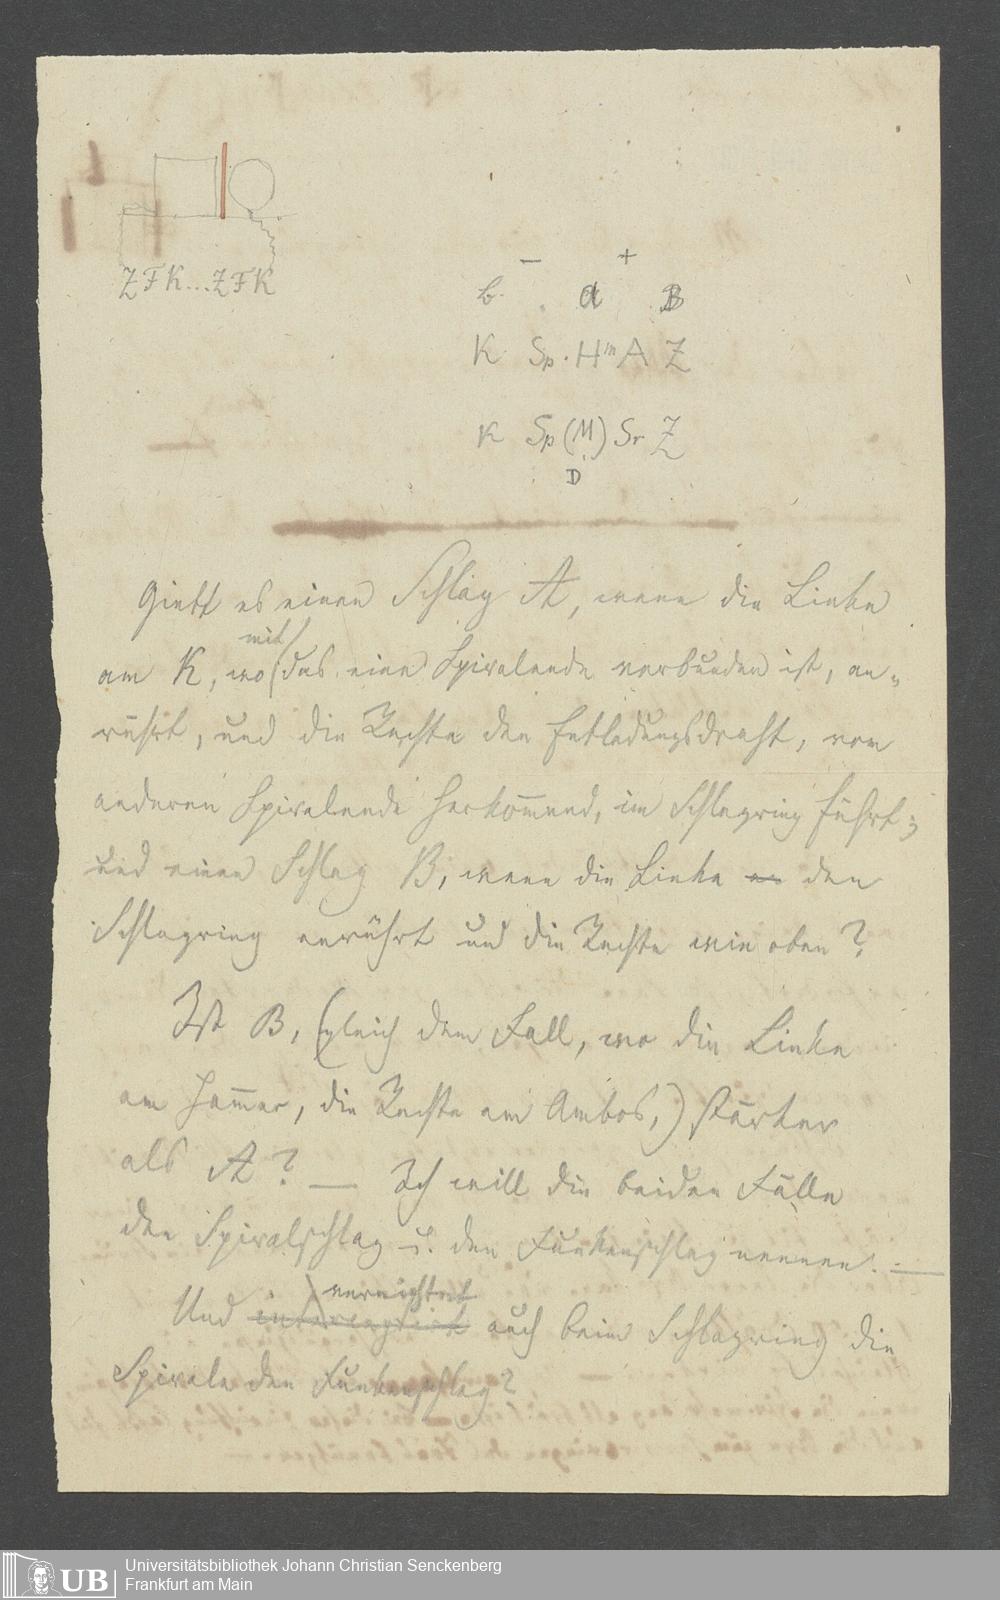 ZFK...ZFK
− +
b. a B
K Sp. Hm A Z
K Sp (M) Sr Z
D
Giebt es einen Schlag A, wenn die Linke
am K, wo mit das eine Spiralende verbunden ist, an-
rührt, und die Rechte den Entladungsdraht, vom
anderen Spiralende herkommend, im Schlagring führt;
und einen Schlag B, wenn die Linke an den
Schlagring anrührt und die Rechte wie oben?
Ist B, (gleich dem Fall, wo die Linke
am Hammer, die Rechte am Ambos,) stärker
als A? — Ich will die beiden Fälle
den Spiralschlag u. den Funkenschlag nennen. —
Und vernichtet auch beim Schlagring die
Spirale den Funkenschlag?
UB Universitätsbibliothek Johann Christian Senckenberg
Frankfurt am Main